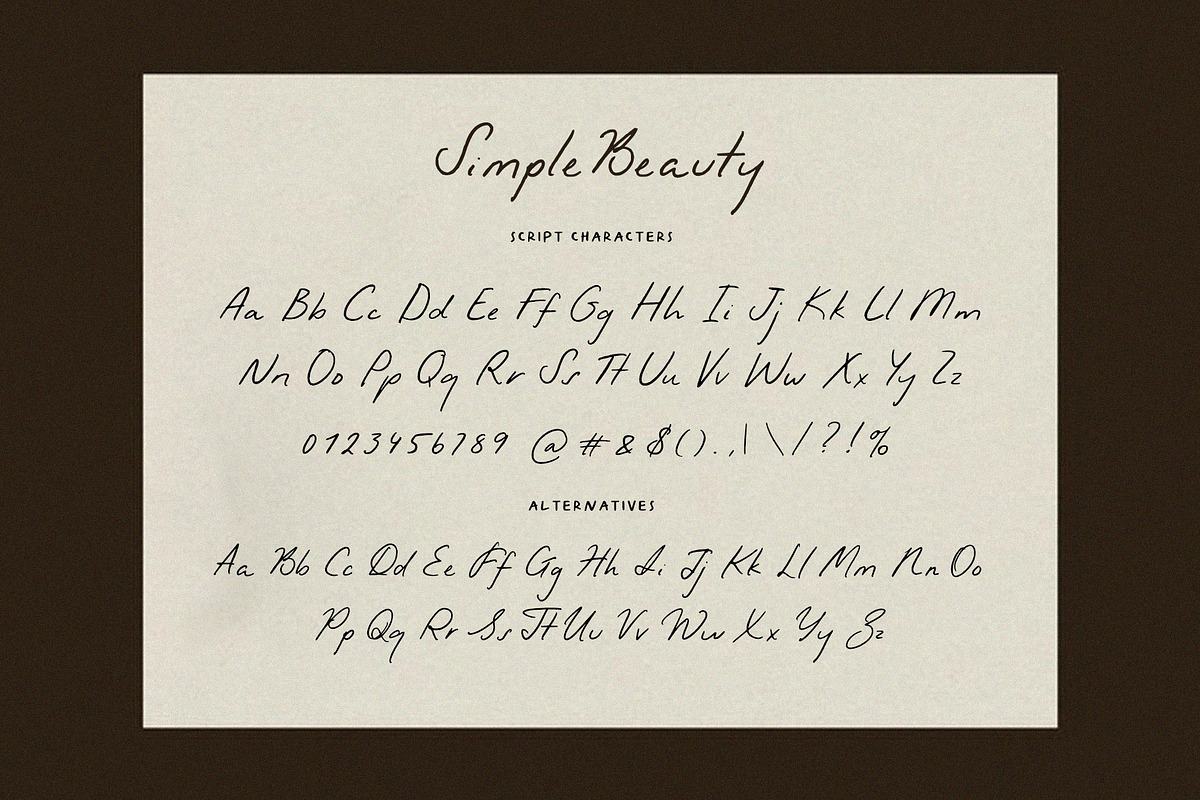 Simple Beauty
SCRIPT CHARACTERS
Aa Bb Cc Dd Ee Ff Gg Hh Ii Jj Kk Ll Mm
Nn Oo Pp Qq Rr Ss Tt Uu Vv Ww Xx Yy Zz
0123456789 @ # & $ ( ) . , | \ / ? ! %
ALTERNATIVES
Aa Bb Cc Dd Ee Ff Gg Hh Ii Jj Kk Ll Mm Nn Oo
Pp Qq Rr Ss Tt Uu Vv Ww Xx Yy Zz